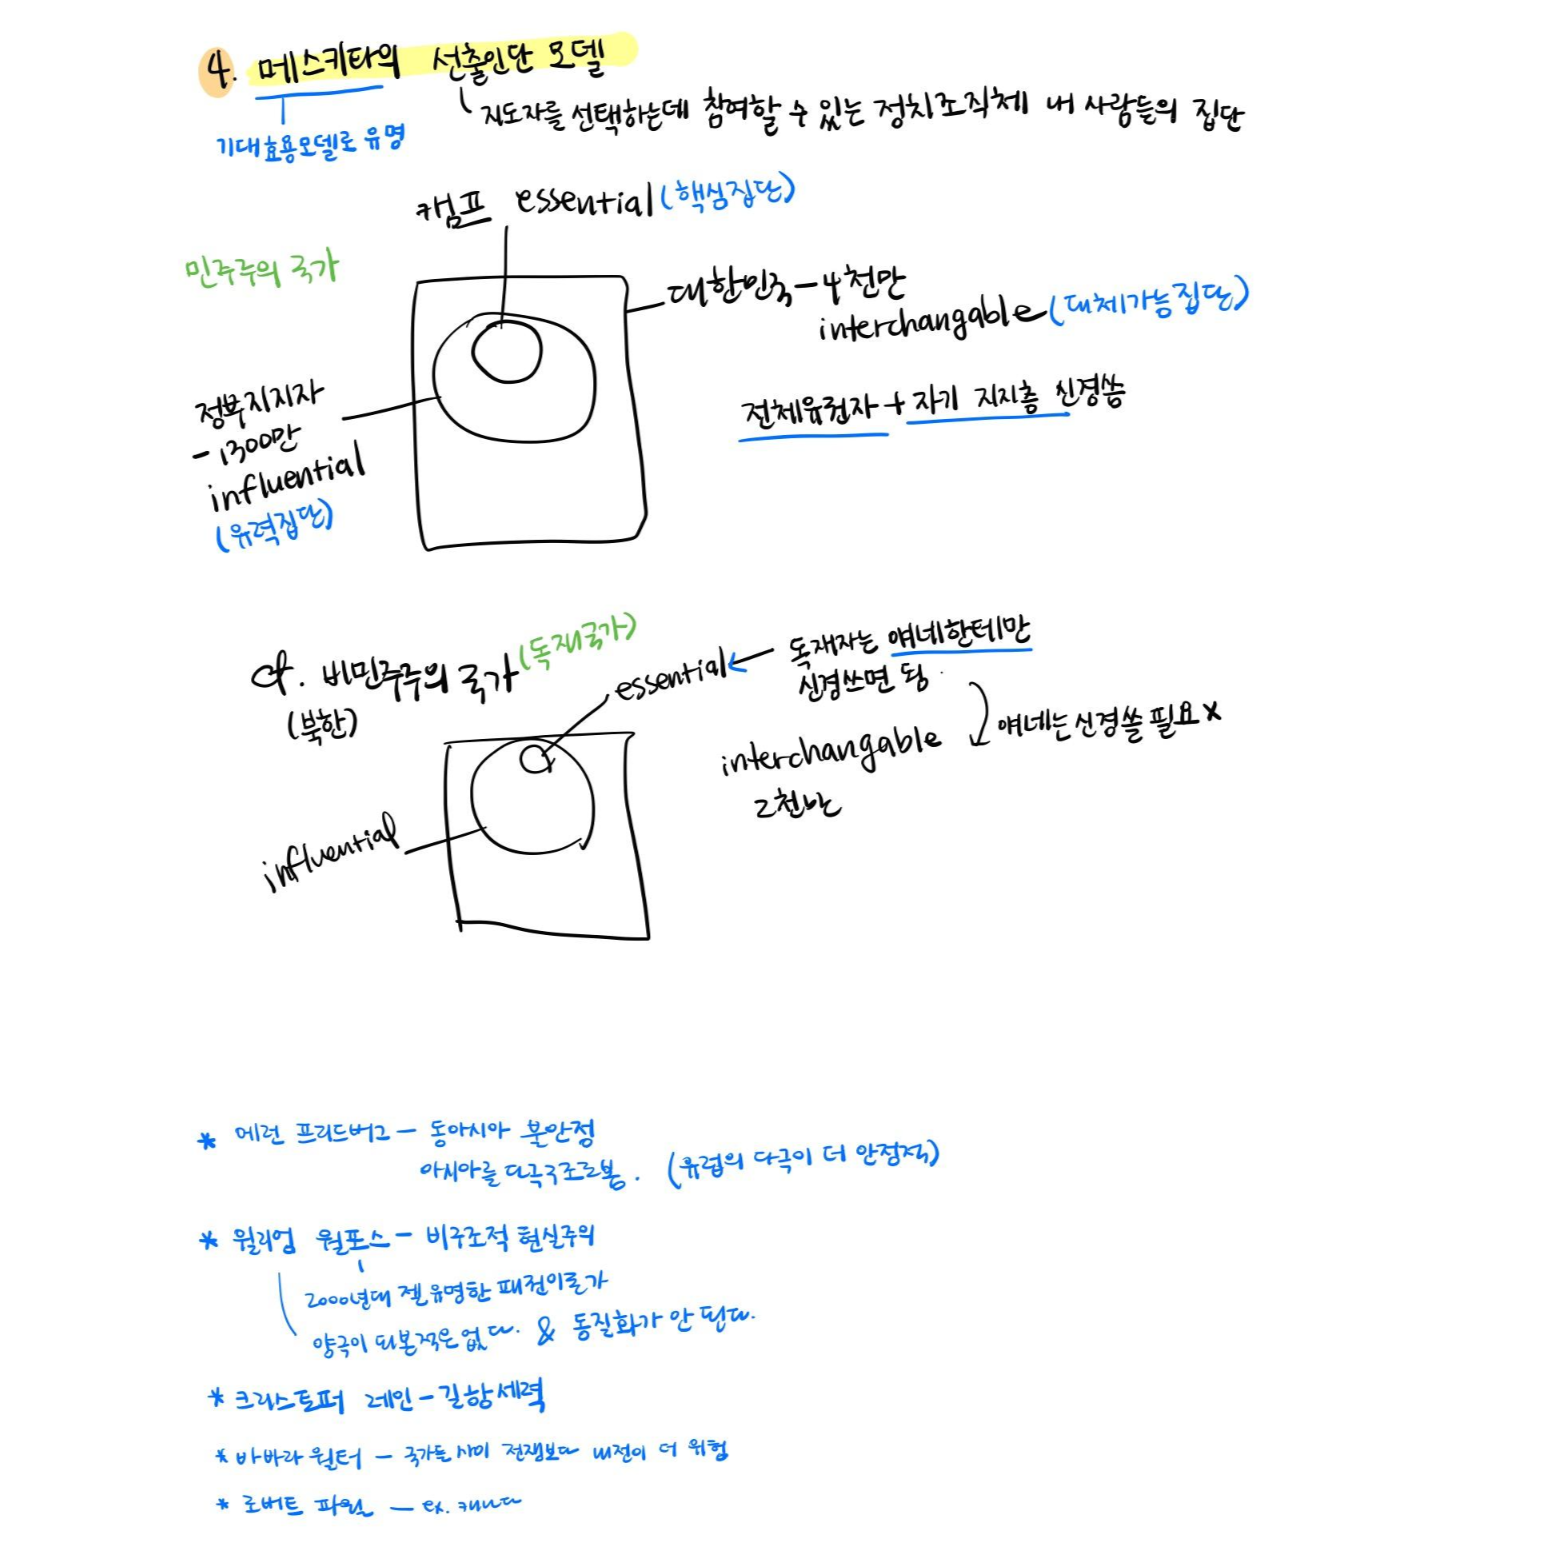 4. 메스키타의 선출인단 모델
기대효용모델로 유명
지도자를 선택하는데 참여할 수 있는 정치조직체 내 사람들의 집단
캠프 essential (핵심집단)
민주주의 국가
대한민국 - 4천만
interchangable (대체가능집단)
정부지지자
- 1300만
influential
(유력집단)
전체유권자 + 자기 지지층 신경씀
cf. 비민주주의 국가 (독재국가)
(북한)
essential ← 독재자는 얘네한테만
신경쓰면 됨.
interchangable
2천만
얘네는 신경쓸 필요 X
influential
* 에런 프리드버그 - 동아시아 불안정
아시아를 다극구조로봄. (유럽의 다극이 더 안정적)
* 윌리엄 월포스 - 비구조적 현실주의
2000년대 젤 유명한 패권이론가
양극이 되본적은 없다. & 동질화가 안 된다.
* 크리스토퍼 레인 - 길항세력
* 바바라 월터 - 국가들 사이 전쟁보다 내전이 더 위험
* 로버트 파월 - ex. 캐나다